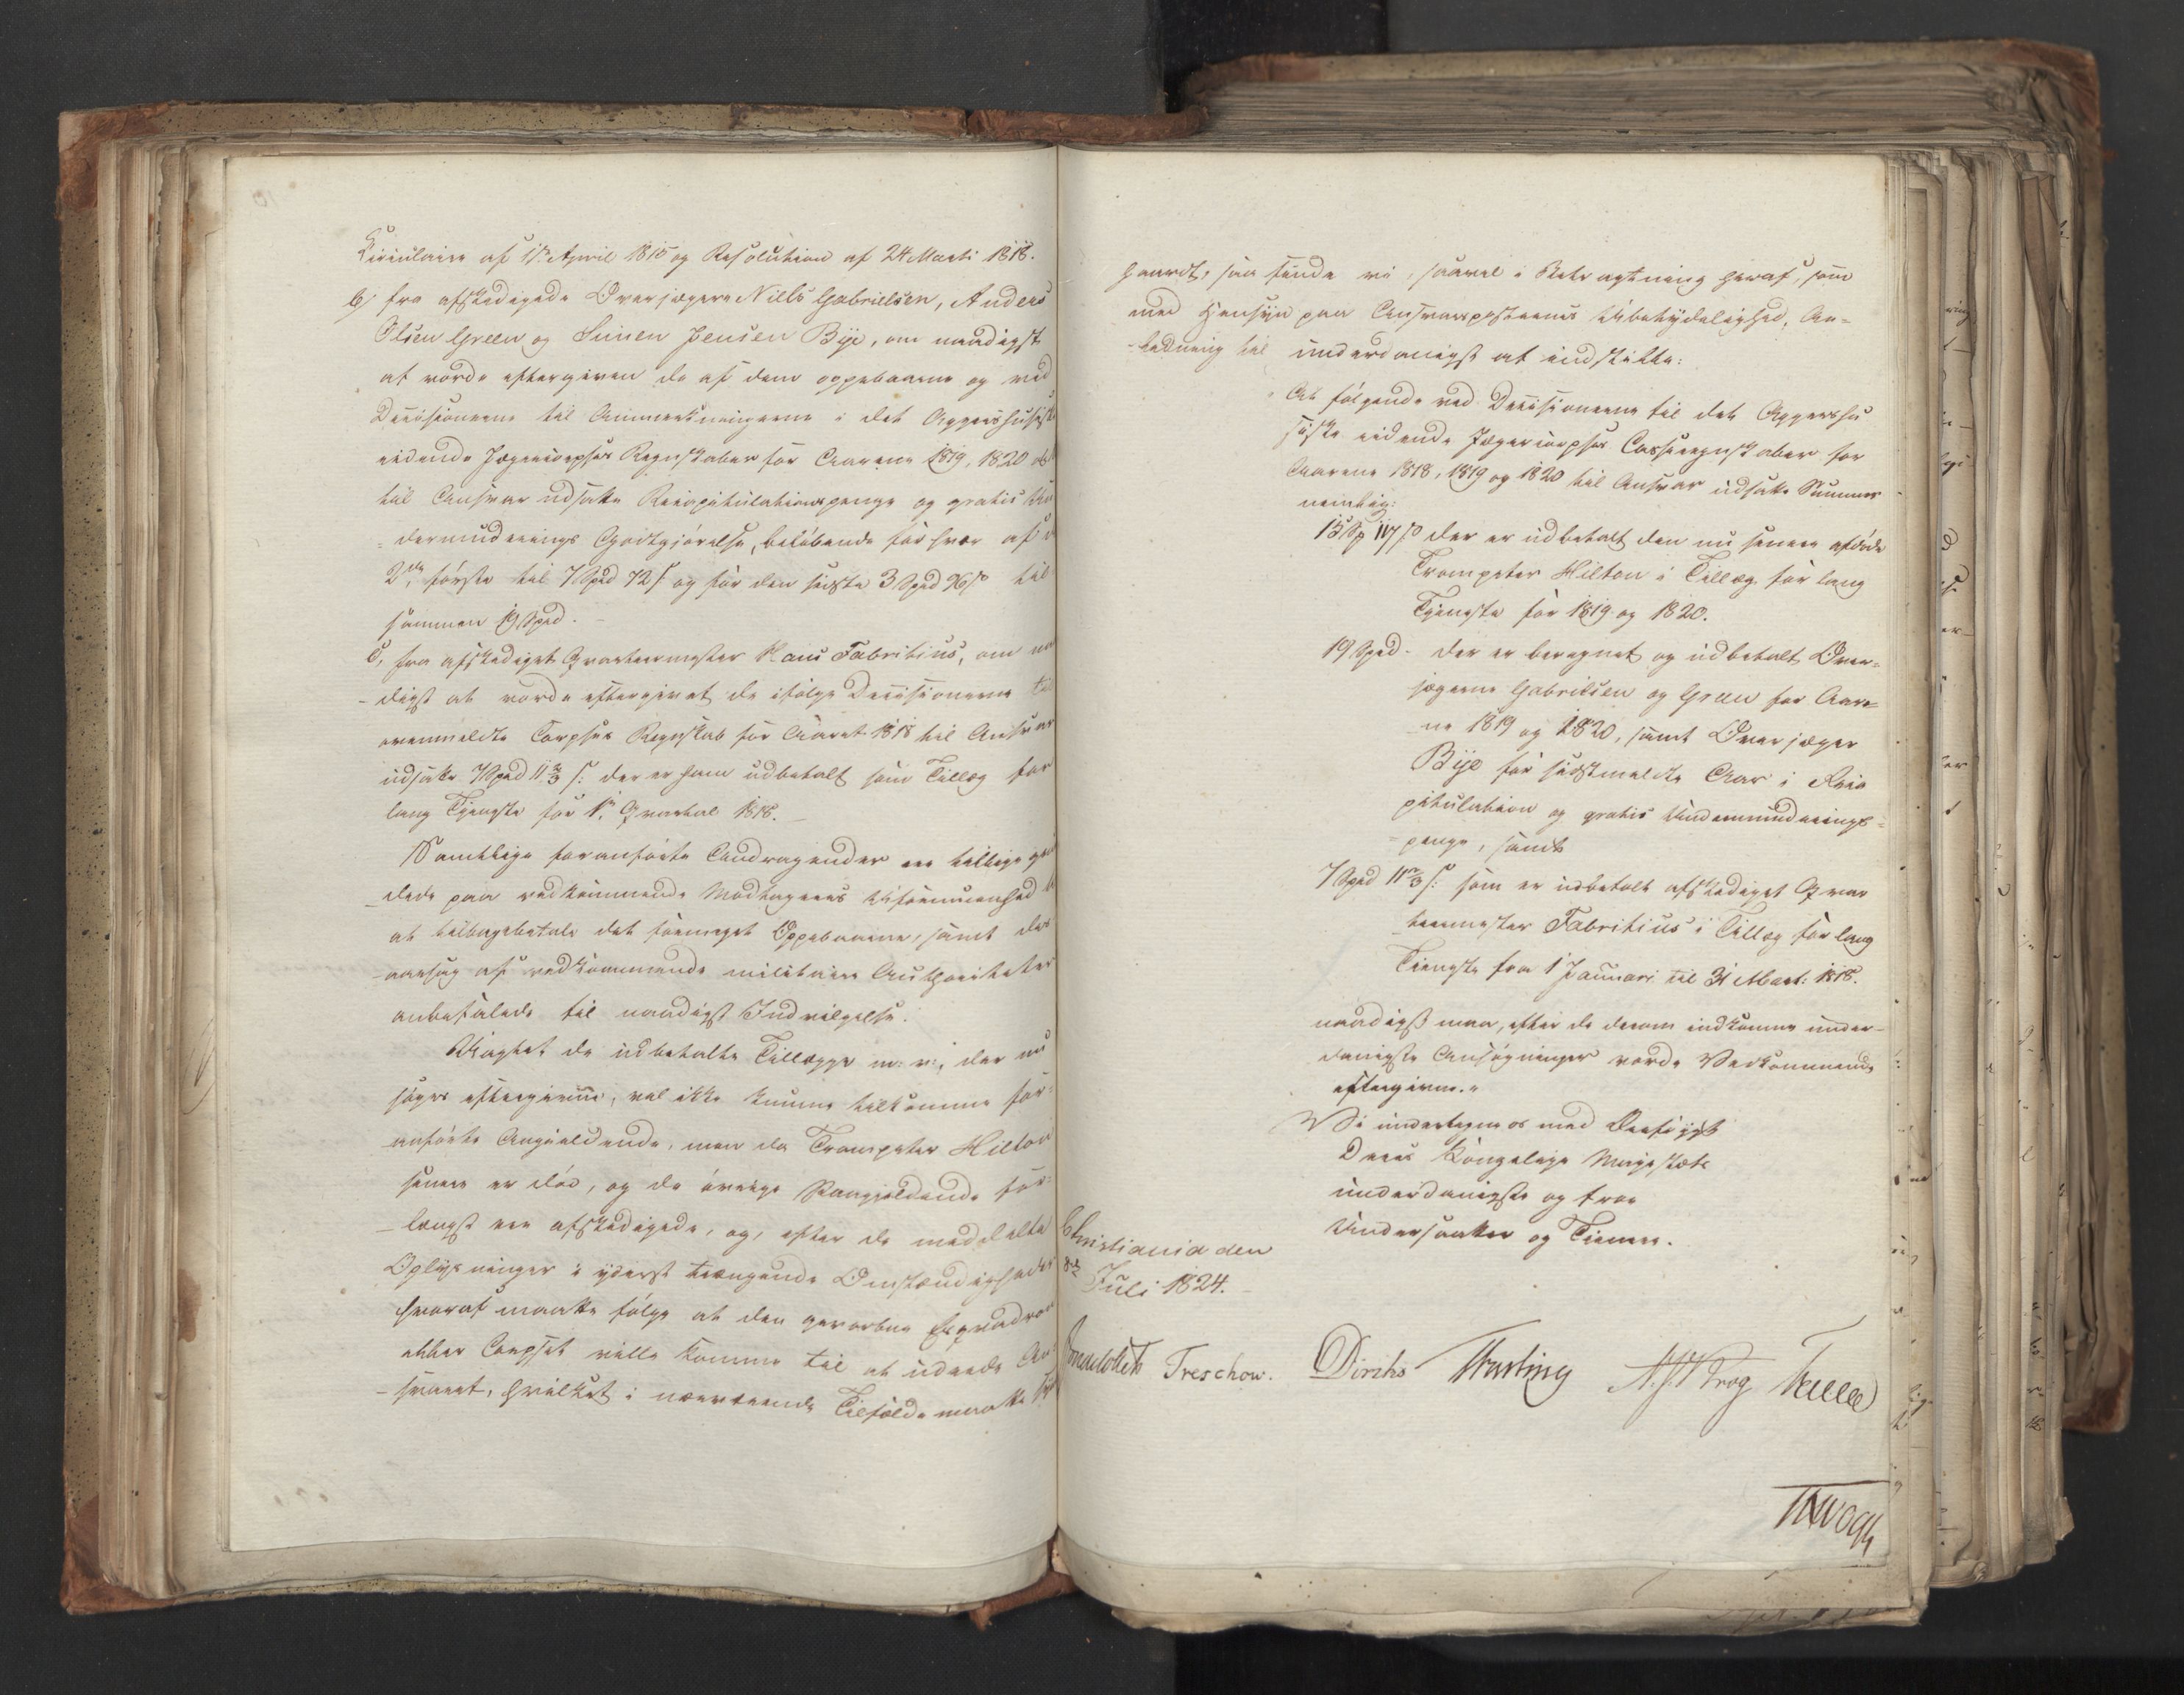 Circulaire af 1ste April 1815 og Resolution af 24 Marti 1818.
b, fra afskedigede Overjægere Niels Gabrielsen, Anders
Olsen Green og Simen Jensen Bye, om naadigst
at vorde eftergiven de af dem oppebaarne og ved
Decisionerne til Antegnelserne i det Aggershusiske
ridende Jægercorpses Regnskaber for Aarene 1819, 1820
til Ansvar udsatte Recapitulationspenge og gratis Un-
dermunderings Godtgjörelse, belöbende for hver af de
2de förste til 7 Spd 72 ß og for den sidste 3 Spd 96 ß til-
sammen 19 Spd.
c, fra afskediget Qvarteermester Hans Fabritius, om naa-
digst at vorde eftergivet de ifölge Decisionerne til
ovenmeldte Corpses Regnskab for Aaret 1818 til Ansvar
udsatte 7 Spd 11 2/3 ß: der er ham udbetalt som Tillæg for
lang Tjeneste for 1ste Qvartal 1818.
Samtlige foranförte Andragender ere tillige grun-
dede paa vedkommende Modtageres Uformuenhed til
at tilbagebetale det formeget Oppebaarne, samt des-
aarsag af vedkommende militaire Authoriteter
anbefalede til naadigst Indvilgelse.
Uagtet de udbetalte Tillægge m: v:, der nu
söges eftergivne, vel ikke kunne tilkomme for-
anförte Angieldende, men da Trompeter Hilton
senere er död, og de övrige Paagjeldende for-
længst ere afskedigede, og, efter de meddelte
Oplysninger i yderst trængende Omstændigheder
hvoraf maatte fölge at den gevorbne Esqvadron
eller Corpset ville komme til at udrede An-
svaret, hvilket i nærværende Tilfælde maatte
haardt, saa finde vi, saavel i Betragtning heraf, som
med Hensyn paa Ansvarsposternes Ubetydelighed, An-
ledning til underdanigst at indstille:
At fölgende ved Decisionerne til det Aggershu-
siske ridende Jægercorpses Casseregnskaber for
Aarene 1818, 1819 og 1820 til Ansvar udsatte Summer
nemlig:
15 Sp 117 ß der er udbetalt den nu senere afdöde
Trompeter Hilton i Tillæg for lang
Tjeneste for 1819 og 1820.
19 Spd. der er beregnet og udbetalt Over-
jægerne Gabrilsen og Green for Aare-
ne 1819 og 1820, samt Overjæger
Bye for sidstmeldte Aar i Reca-
pitulation og gratis Undermunderings-
penge, samt
7 Spd 11 2/3 ß: som er udbetalt afskediget Qvar-
teermester Fabritius i Tillæg for lang
Tieneste fra 1 Januari til 31 Mart: 1818.
naadigst maa, efter de derom indkomne under-
danigste Ansögninger vorde Vedkommende
eftergivne."
Vi undertegne os med Dybeste
Deres Kongelige Majestæts
underdanigste og troe
Undersaatter og Tienere.
Christiania den
8de Juli 1824.
Sommerhielm Treschow. Diriks Fasting N. J. Krog Keller